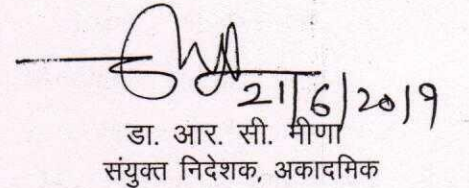 21/6/2019
डा. आर. सी. मीणा
संयुक्त निदेशक, अकादमिक